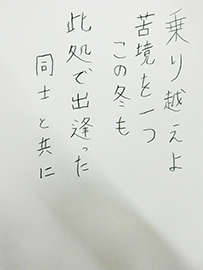 乗り越えよ
苦境を一つ
この冬も
此処で出逢った
同士と共に